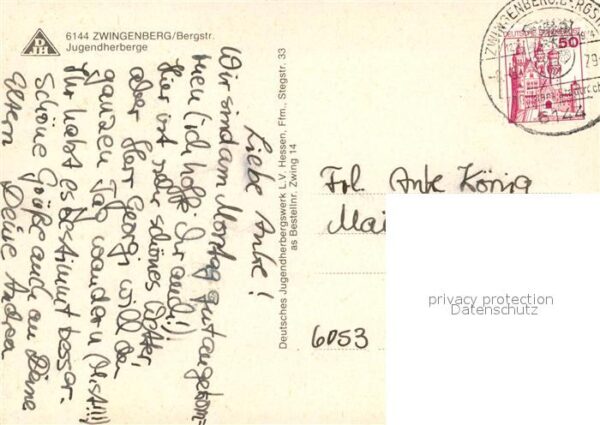 6144 ZWINGENBERG/Bergstr.
Jugendherberge
Liebe Anke!
Wir sind am Montag gut angekom-
men (ich hoffe Ihr auch!)
hier ist sehr schönes Wetter,
aber Herr Georgi will den
ganzen Tag wandern (Mist!!!)
Ihr habt es bestimmt besser.
Schöne Grüße auch an Deine
Eltern Deine Andrea
Deutsches Jugendherbergswerk L.V. Hessen, Ffm., Stegstr. 33
as Bestellnr. Zwing 14
ZWINGENBERG, BERGSTR
50
6144
Frl. Anke König
Mai
6053
privacy protection
Datenschutz